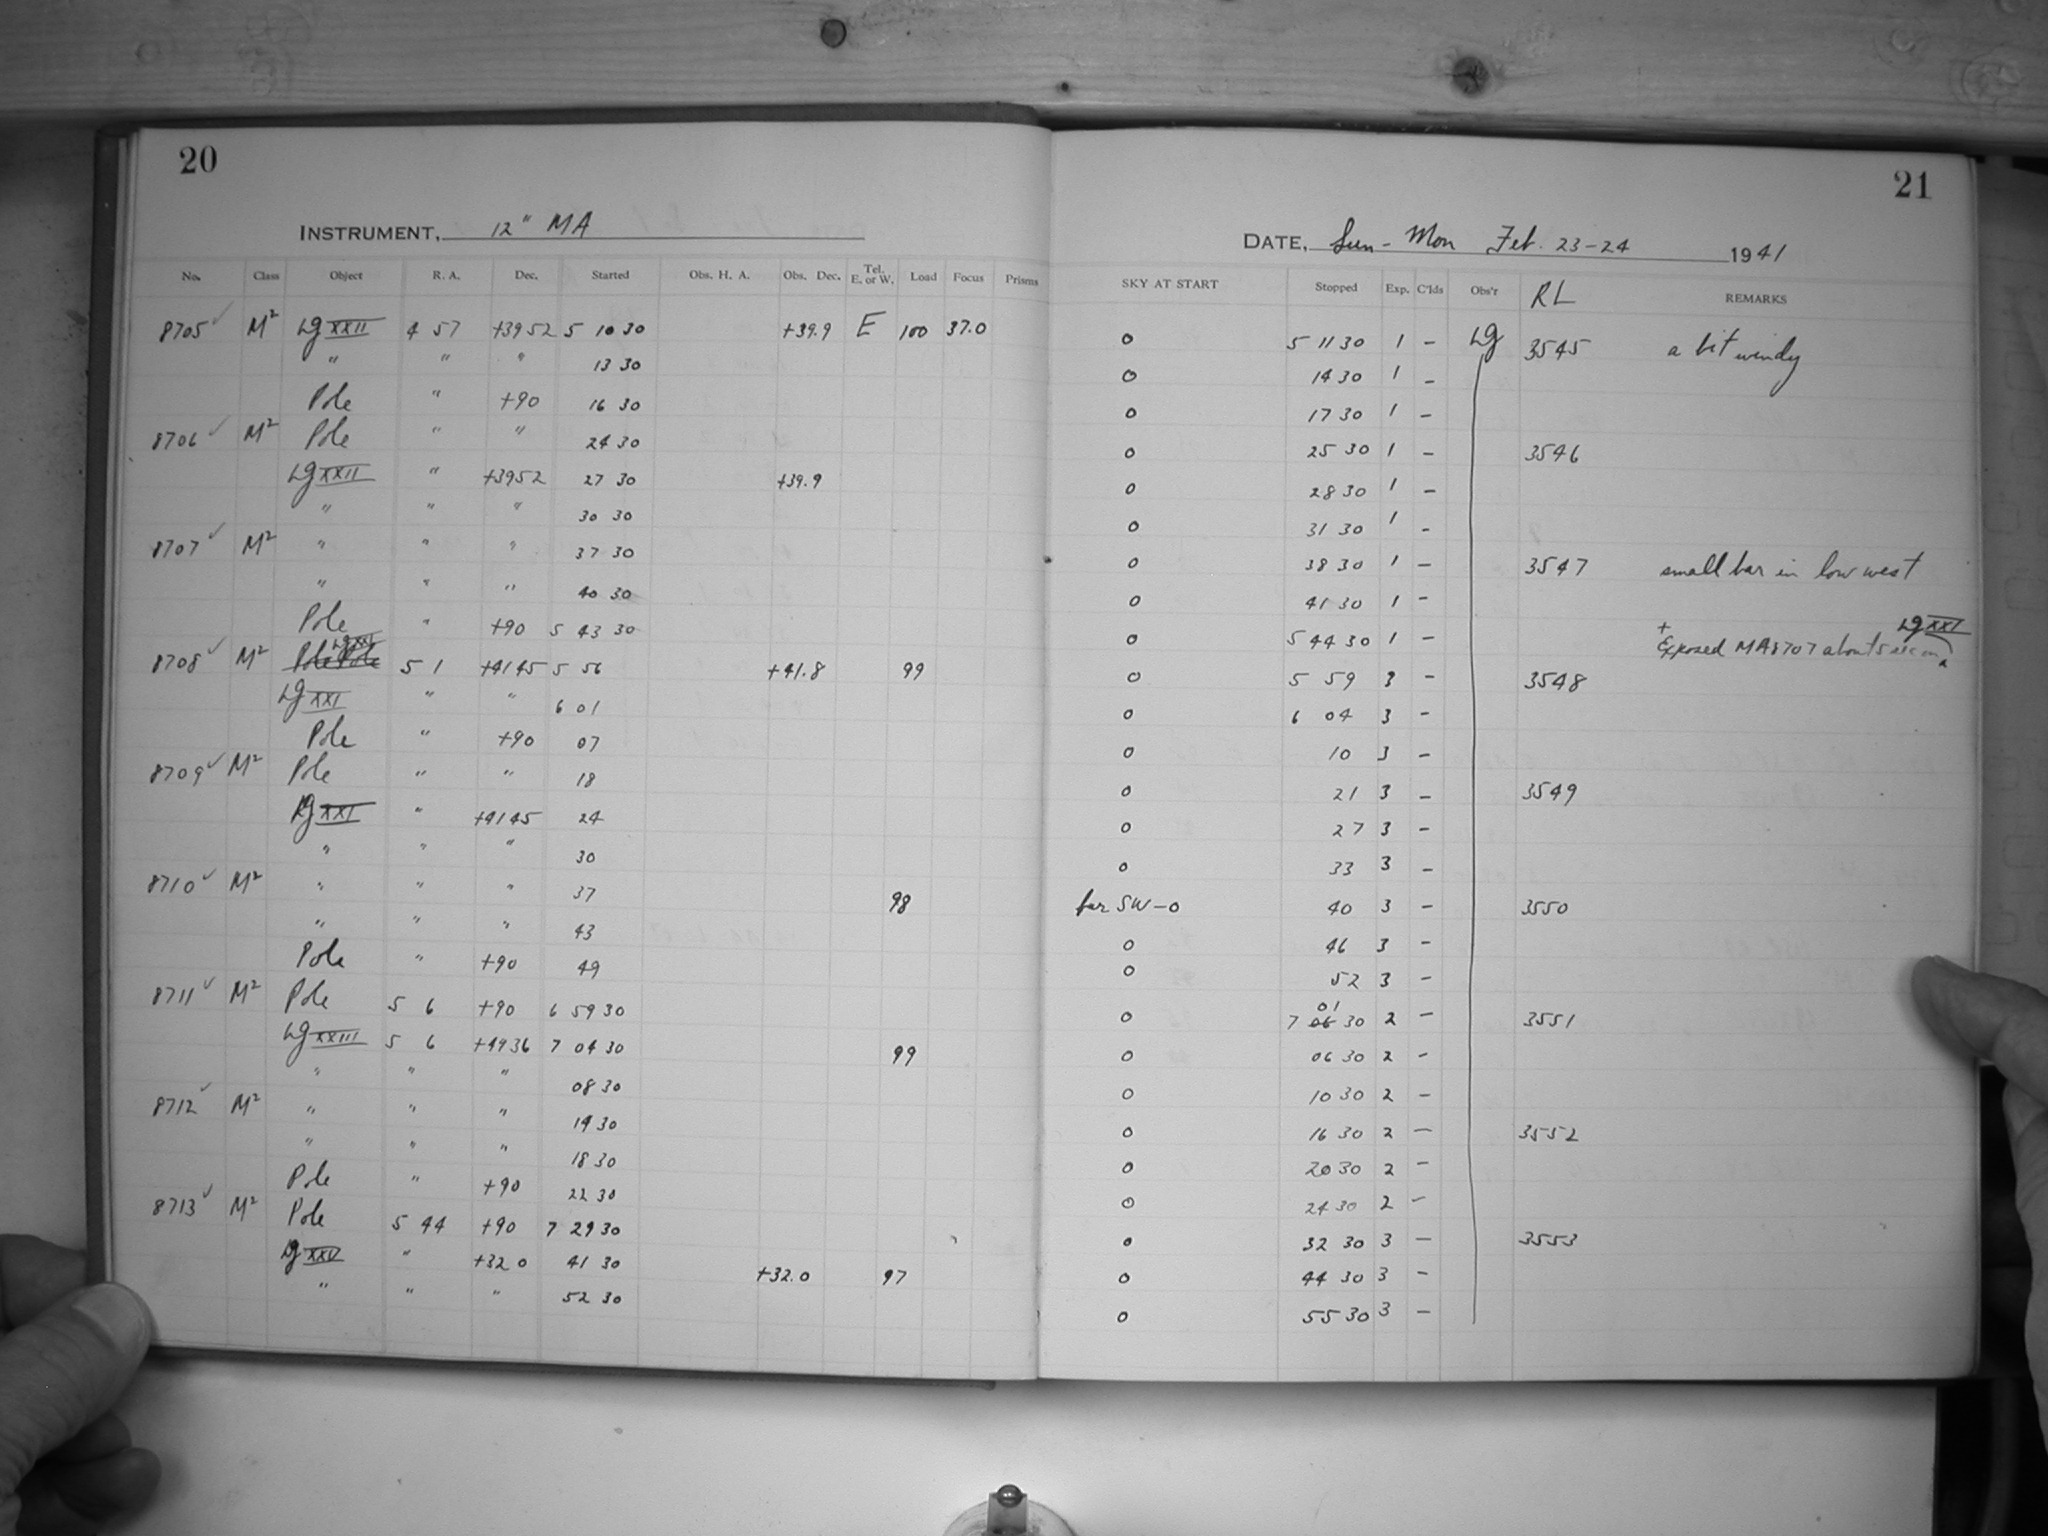 20
INSTRUMENT, 12" MA
No. Class Object R. A. Dec. Started Obs. H. A. Obs. Dec. Tel. E. or W. Load Focus Prisms
8705 ✓ M² Lg XXII 4 57 +39 52 5 10 30 +39.9 E 100 37.0
" " " 13 30
Pole " +90 16 30
8706 ✓ M² Pole " " 24 30
Lg XXII " +39 52 27 30 +39.9
" " " 30 30
8707 ✓ M² " " " 37 30
" " " 40 30
Pole " +90 5 43 30
8708 ✓ M² Pole Pole Lg XXI 5 1 +41 45 5 56 +41.8 99
Lg XXI " " 6 01
Pole " +90 07
8709 ✓ M² Pole " " 18
Lg XXI " +41 45 24
" " " 30
8710 ✓ M² " " " 37 98
" " " 43
Pole " +90 49
8711 ✓ M² Pole 5 6 +90 6 59 30
Lg XXIII 5 6 +49 36 7 04 30 99
" " " 08 30
8712 ✓ M² " " " 14 30
" " " 18 30
Pole " +90 22 30
8713 ✓ M² Pole 5 44 +90 7 29 30
Lg XXV " +32 0 41 30 +32.0 97
" " " 52 30
21
DATE, Sun - Mon Feb. 23-24 1941
SKY AT START Stopped Exp. C'lds Obs'r RL REMARKS
0 5 11 30 1 - Lg 3545 a bit windy
0 14 30 1 -
0 17 30 1 -
0 25 30 1 - 3546
0 28 30 1 -
0 31 30 1 -
0 38 30 1 - 3547 small bar in low west
0 41 30 1 -
0 5 44 30 1 - + Exposed MA8707 about 5 sec on Lg XXI
0 5 59 3 - 3548
0 6 04 3 -
0 10 3 -
0 21 3 - 3549
0 27 3 -
0 33 3 -
bar SW-0 40 3 - 3550
0 46 3 -
0 52 3 -
0 7 06 01 30 2 - 3551
0 06 30 2 -
0 10 30 2 -
0 16 30 2 - 3552
0 20 30 2 -
0 24 30 2 -
0 32 30 3 - 3553
0 44 30 3 -
0 55 30 3 -